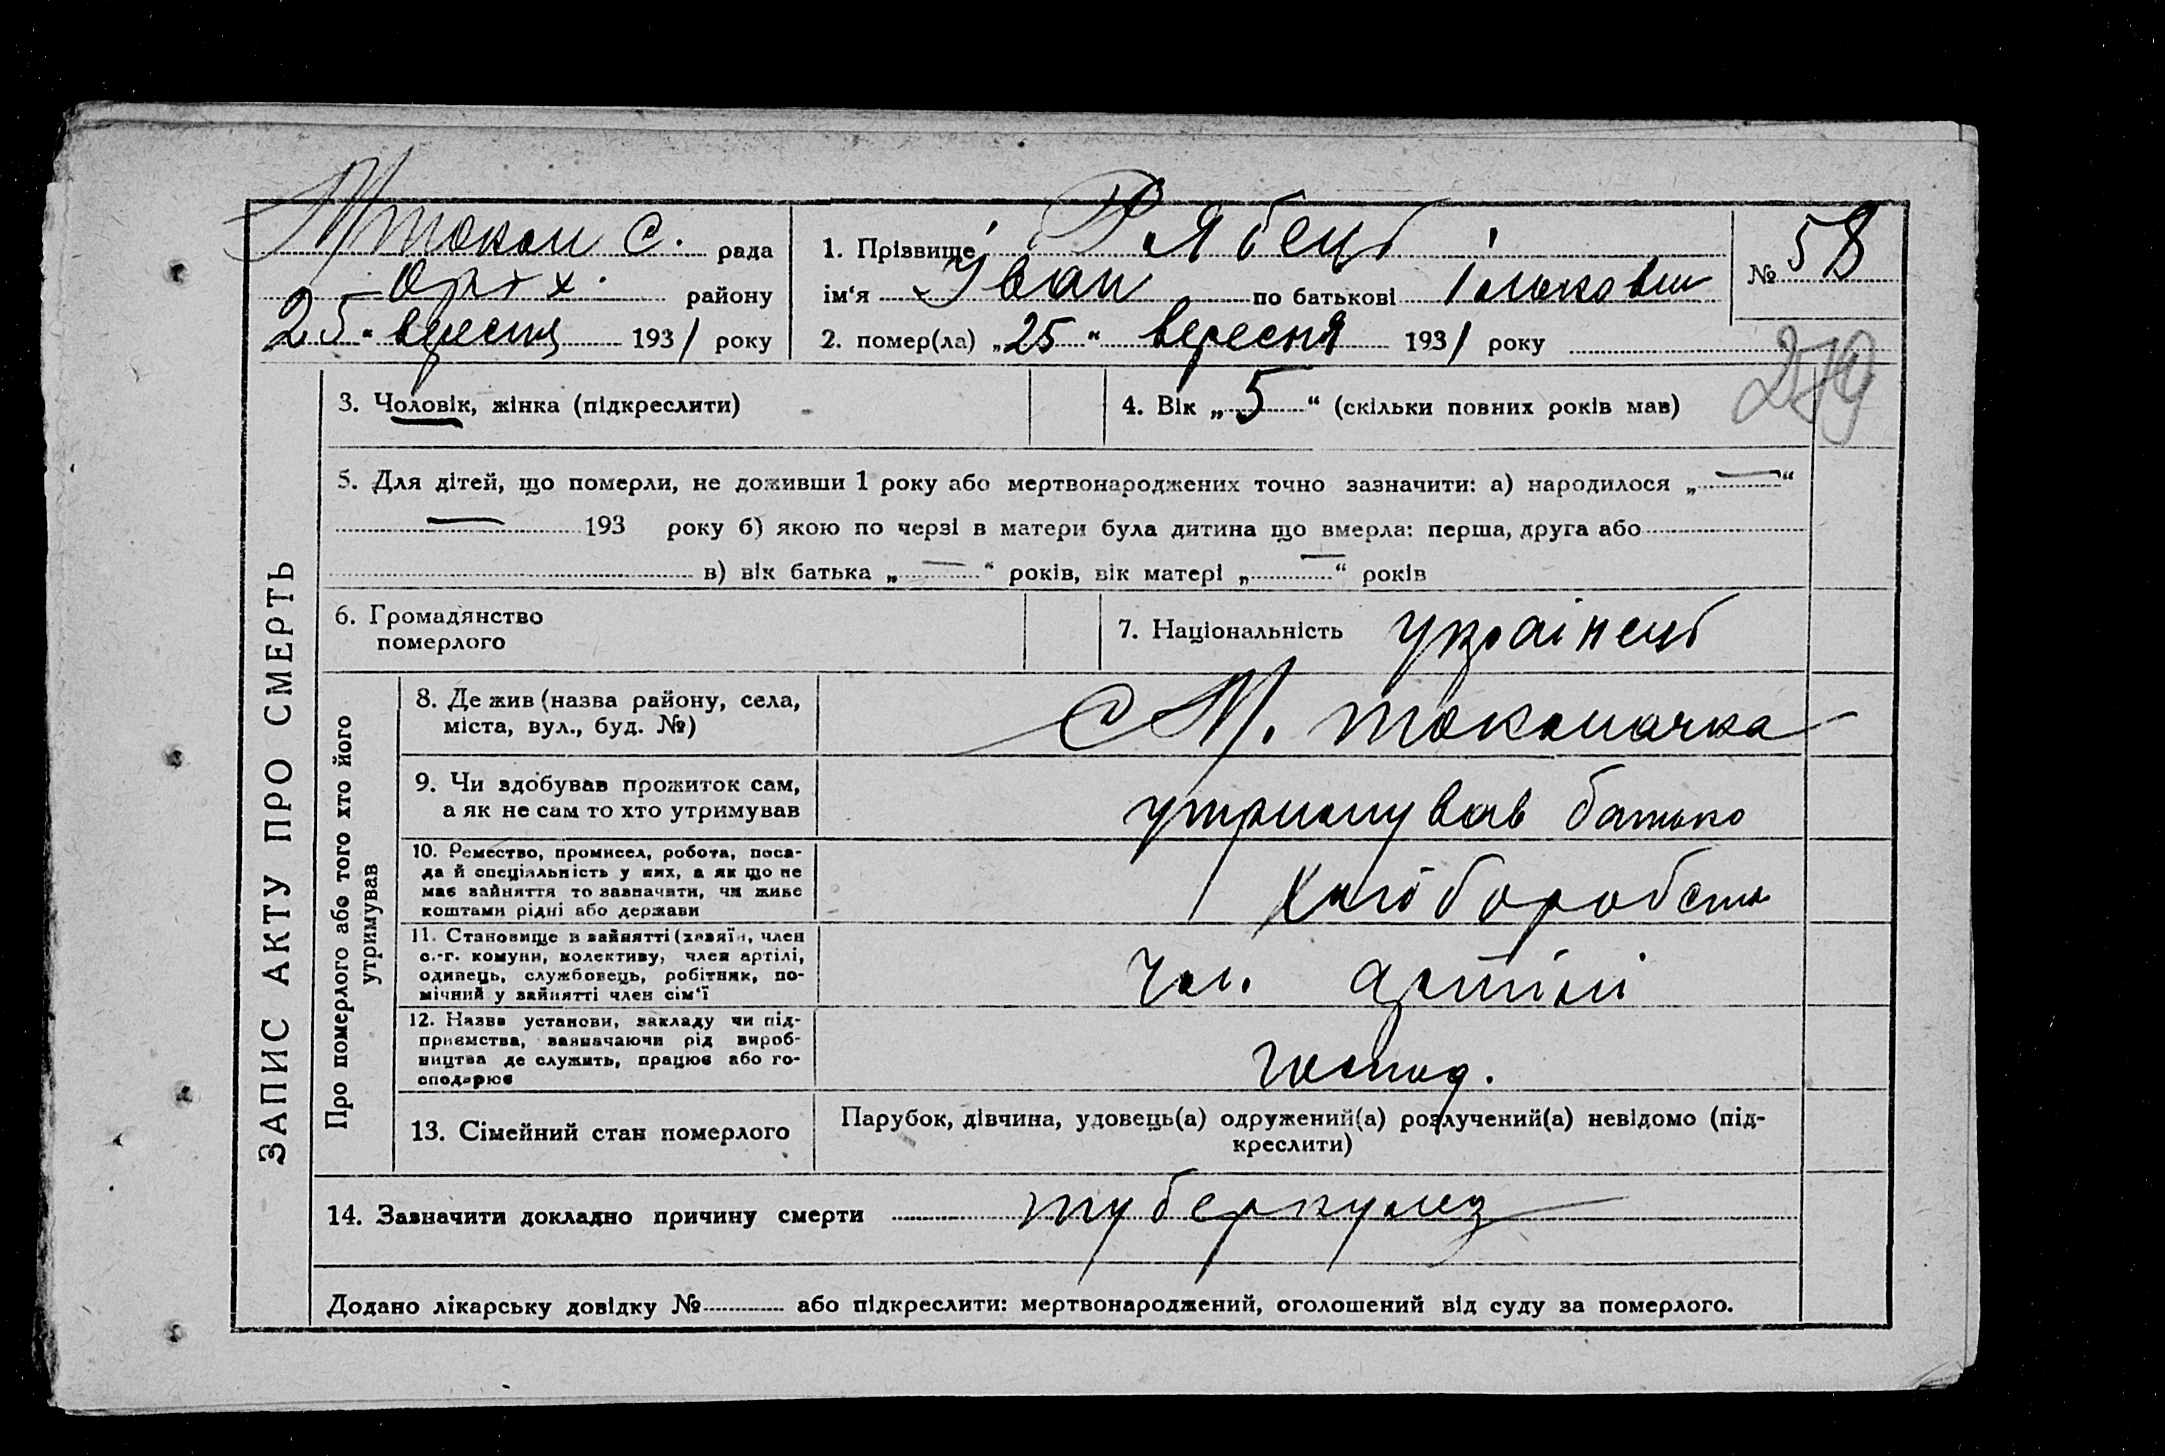 М токм с. рада
Оріх. району
25 " вересня 1931 року
1. Пріввище Рябець
ім'я Іван по батькові Ількович
2. помер(ла) „25" вересня 1931 року
№ 58
279
ЗАПИС АКТУ ПРО СМЕРТЬ
3. Чоловік, жінка (підкреслити)
4. Вік „5" (скільки повних років мав)
5. Для дітей, що померли, не доживши 1 року або мертвонароджених точно зазначити: а) народилося „—"
— 193 року б) якою по черзі в матери була дитина що вмерла: перша, друга або
в) вік батька „—" років, вік матері „—" років
6. Громадянство
померлого
7. Національність українець
Про померлого або того хто його
утримував
8. Де жив (назва району, села,
міста, вул., буд. №)
с М. токмачка
9. Чи здобував прожиток сам,
а як не сам то хто утримував
утримував батько
10. Ремество, промисел, робота, поса-
да й спеціяльність у них, а як що не
має зайняття то зазначити, чи живе
коштами рідні або держави
хліборобств
11. Становище в зайнятті (хазяїн, член
с.-г. комуни, колективу, член артілі,
одинець, службовець, робітник, по-
мічний у зайнятті член сім'ї
чл. артілі
12. Назва установи, закладу чи під-
приємства, зазначаючи рід вироб-
ництва де служить, працює або го-
сподарює
господ.
13. Сімейний стан померлого
Парубок, дівчина, удовець(а) одружений(а) розлучений(а) невідомо (під-
креслити)
14. Зазначити докладно причину смерти туберкулез
Додано лікарську довідку № або підкреслити: мертвонароджений, оголошений від суду за померлого.